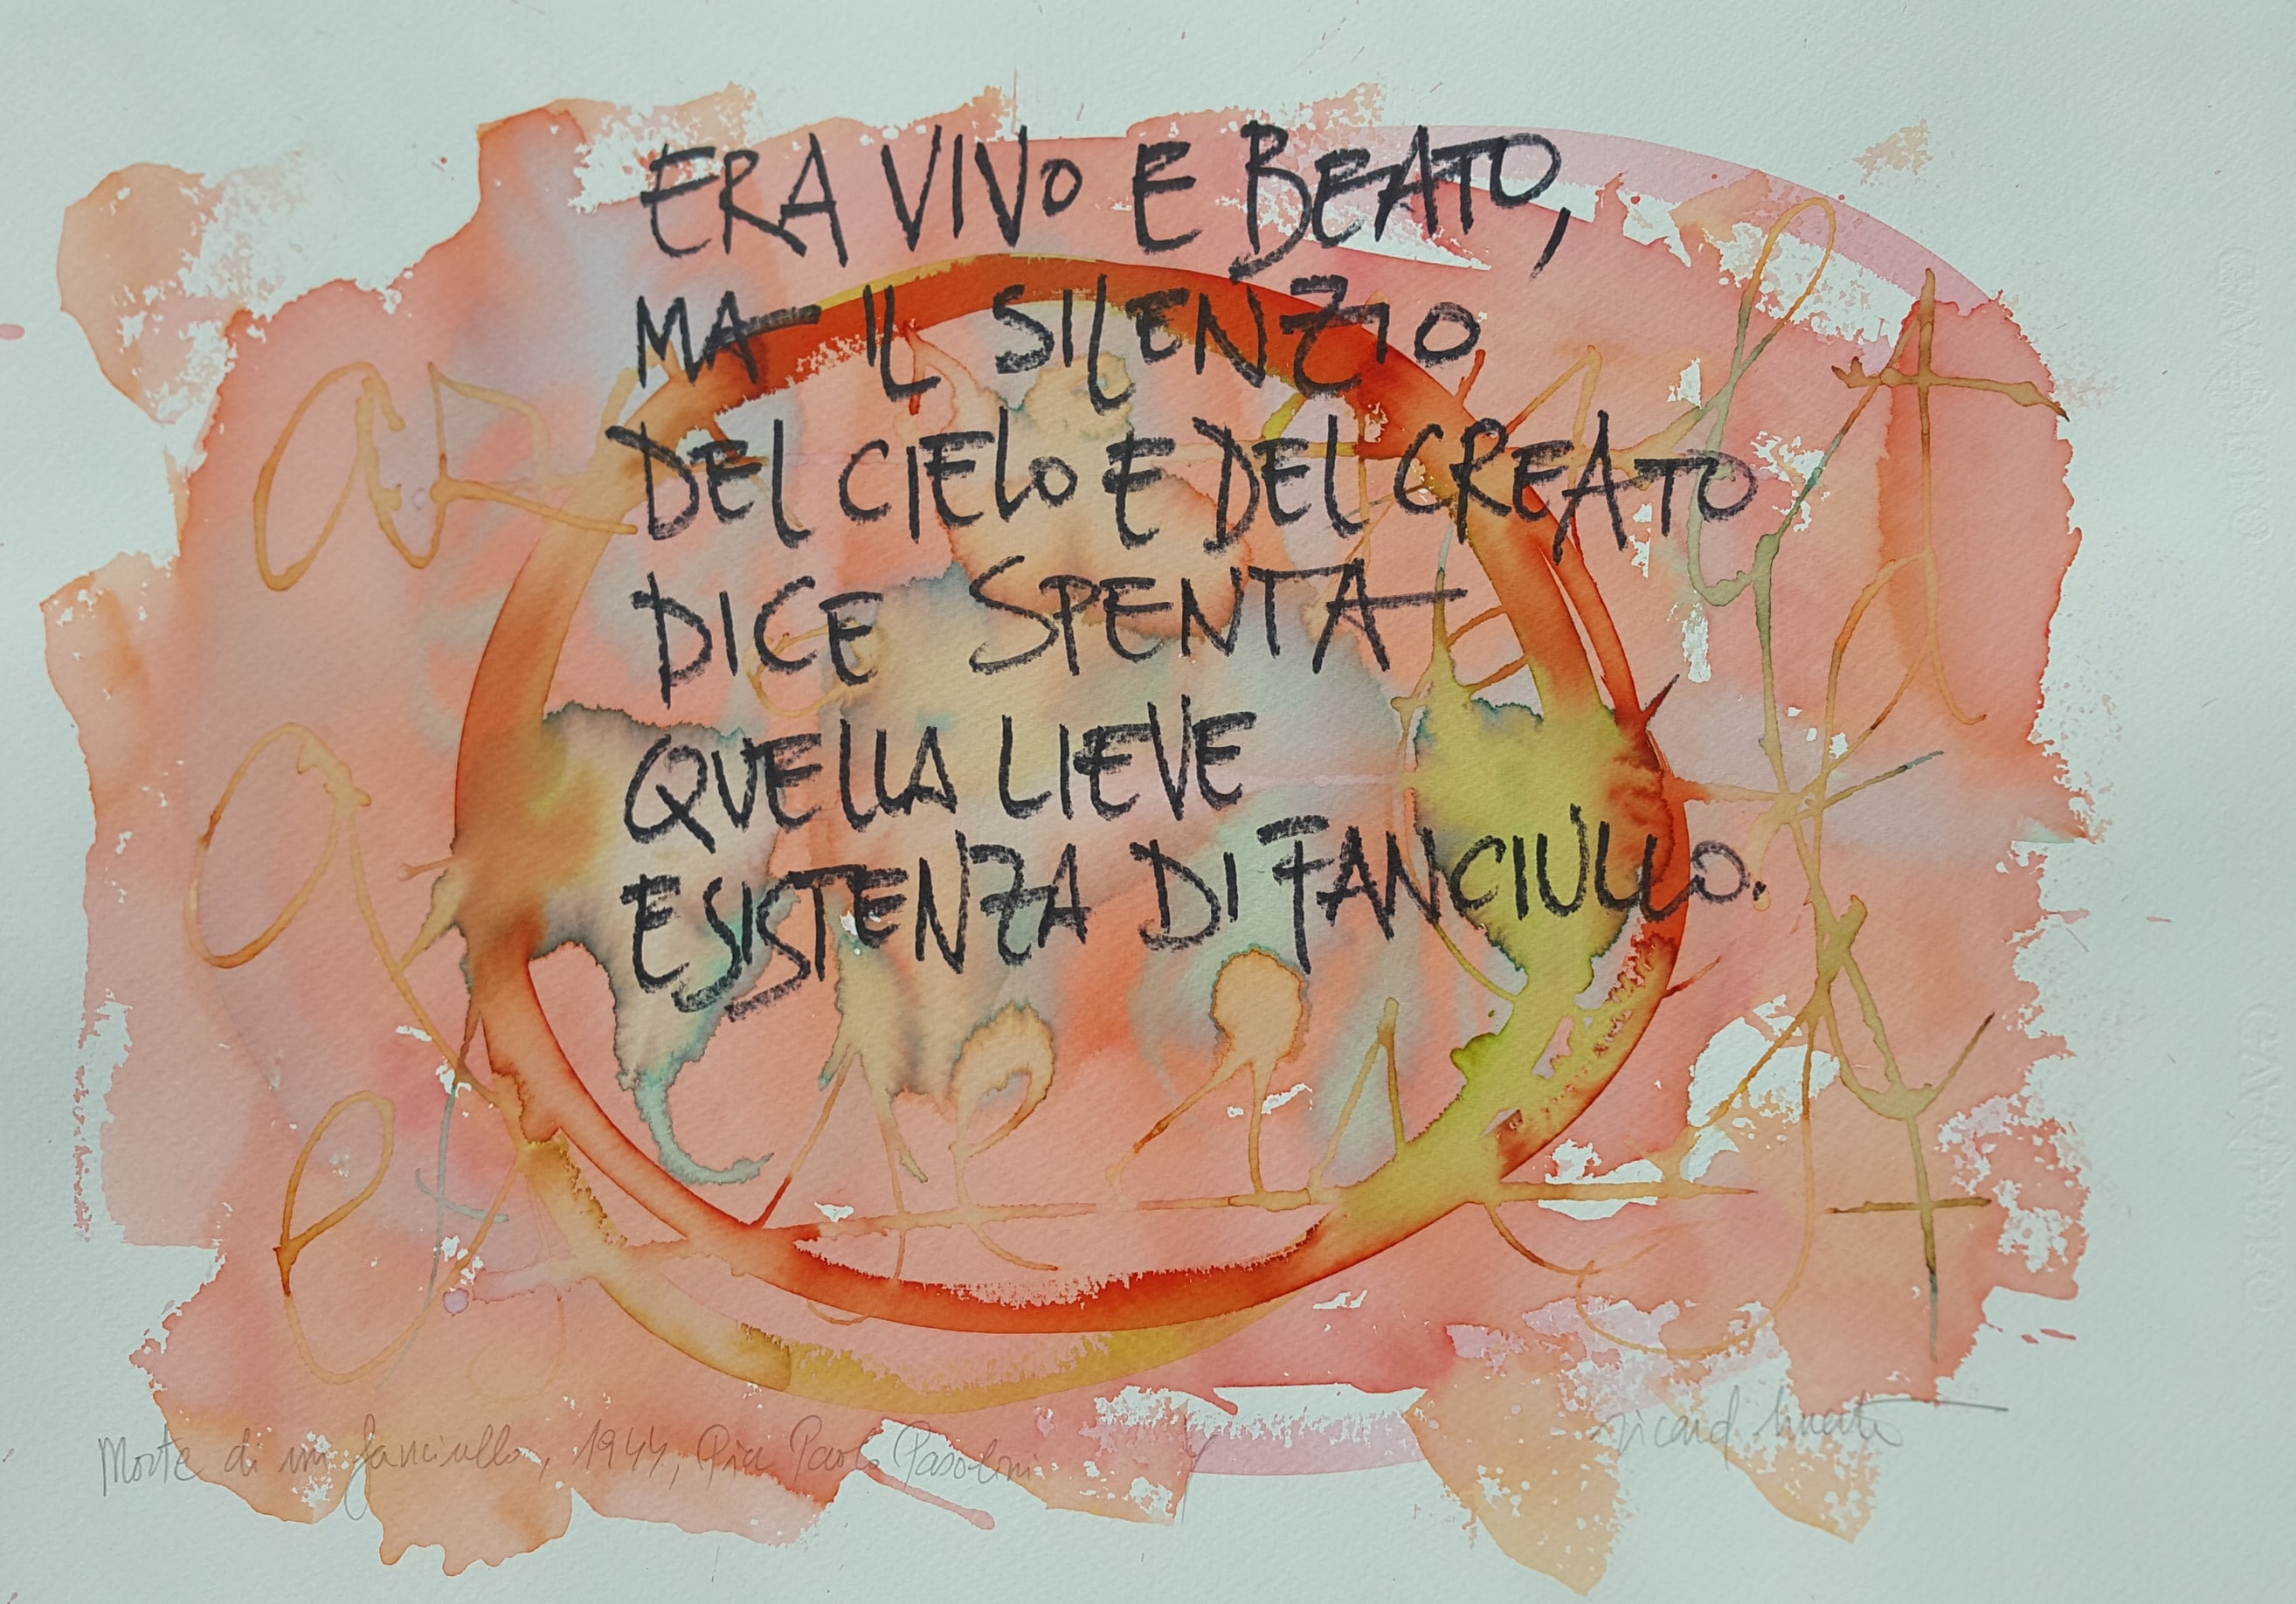 ERA VIVO E BEATO,
MA IL SILENZIO
DEL CIELO E DEL CREATO
DICE SPENTA
QUELLA LIEVE
ESISTENZA DI FANCIULLO.
Morte di un fanciullo, 1944, Pier Paolo Pasolini
ricard